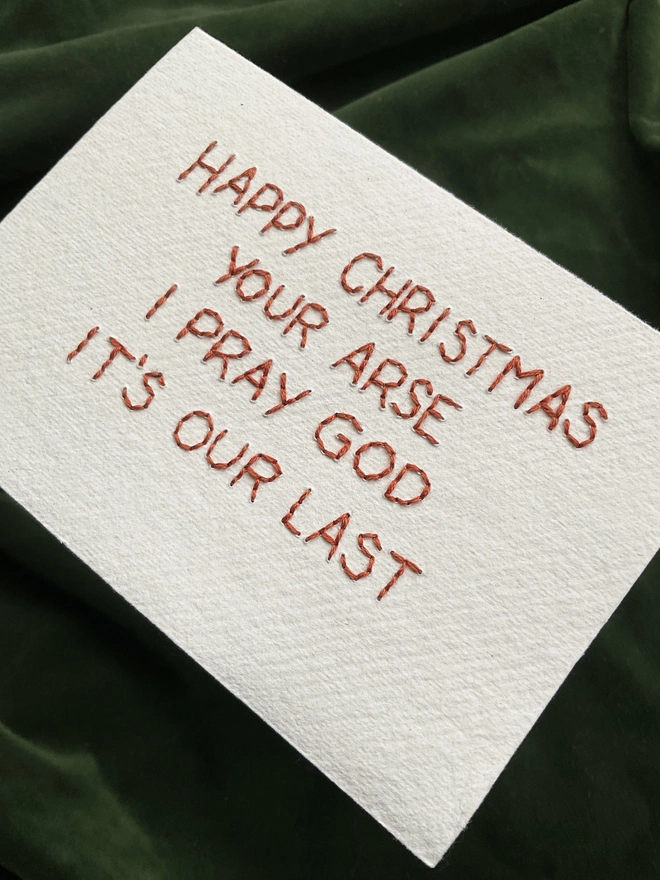 HAPPY CHRISTMAS
YOUR ARSE
I PRAY GOD
IT'S OUR LAST